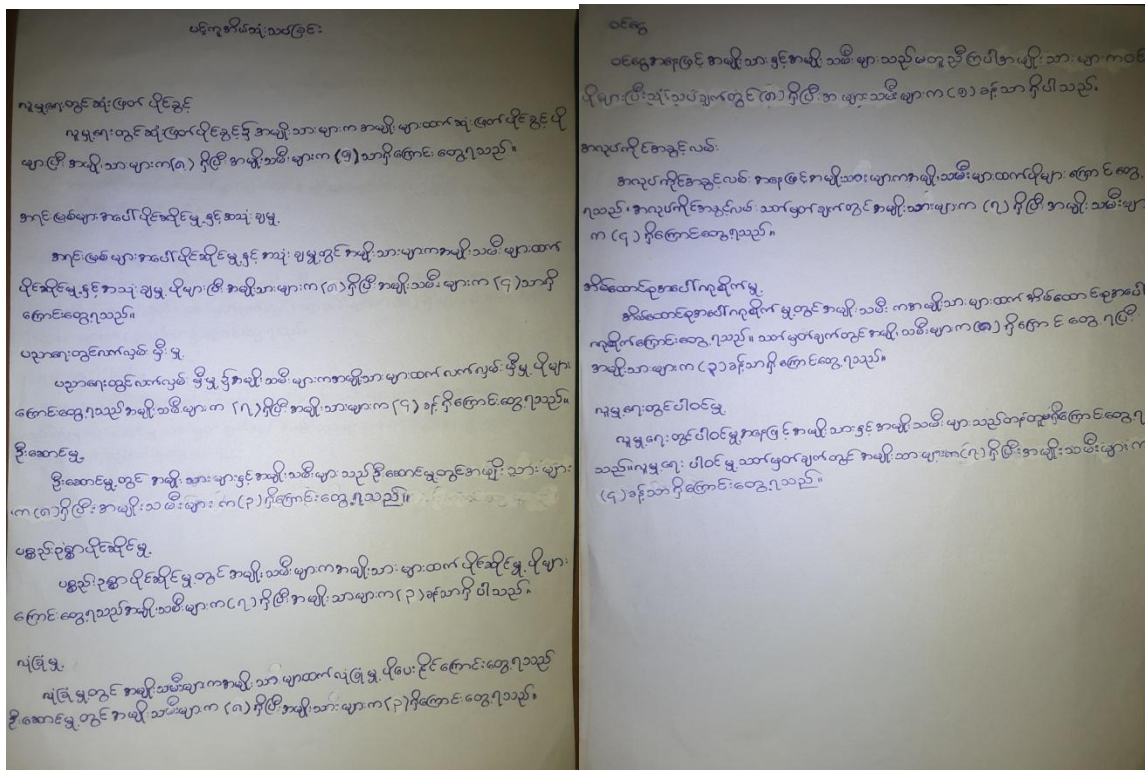 ပင့်ကူအိမ်သုံးသပ်ခြင်း
လူမှုရေးတွင်ဆုံးဖြတ်ပိုင်ခွင့်
လူမှုရေးတွင်ဆုံးဖြတ်ပိုင်ခွင့်၌အမျိုးသားများကအမျိုးများထက်ဆုံးဖြတ်ပိုင်ခွင့်ပို
များပြီးအမျိုးသားများက(၈)ရှိပြီးအမျိုးသမီးများက(၅)သာရှိကြောင်းတွေ့ရသည်။
အရင်းမြစ်များအပေါ်ပိုင်ဆိုင်မှု့နှင့်အသုံးချမှု့
အရင်းမြစ်များအပေါ်ပိုင်ဆိုင်မှု့နှင့်အသုံးချမှု့တွင်အမျိုးသားများကအမျိုးသမီးများထက်
ပိုင်ဆိုင်မှု့နှင့်အသုံးချမှု့ပိုများပြီးအမျိုးသားများက(၈)ရှိပြီးအမျိုးသမီးများက(၄)သာရှိ
ကြောင်းတွေ့ရသည်။
ပညာရေးတွင်လက်လှမ်းမှီမှု့
ပညာရေးတွင်လက်လှမ်းမှီမှု့၌အမျိုးသမီးများကအမျိုးသားများထက်လက်လှမ်းမှီမှု့ပိုများ
ကြောင်းတွေ့ရသည်အမျိုးသမီးများက(၇)ရှိပြီးအမျိုးသားများက(၄)ခန့်ရှိကြောင်းတွေ့ရသည်။
ဦးဆောင်မှု့
ဦးဆောင်မှု့တွင်အမျိုးသားများနှင့်အမျိုးသမီးများသည်ဦးဆောင်မှု့တွင်အမျိုးသားများ
က(၈)ရှိပြီးအမျိုးသမီးများက(၃)ရှိကြောင်းတွေ့ရသည်။
ပစ္စည်းဥစ္စာပိုင်ဆိုင်မှု့
ပစ္စည်းဥစ္စာပိုင်ဆိုင်မှု့တွင်အမျိုးသမီးများကအမျိုးသားများထက်ပိုင်ဆိုင်မှု့ပိုများ
ကြောင်းတွေ့ရသည်အမျိုးသမီးများက(၇)ရှိပြီးအမျိုးသားများက(၃)ခန့်သာရှိပါသည်။
လုံခြုံမှု့
လုံခြုံမှု့တွင်အမျိုးသမီးများကအမျိုးသားများထက်လုံခြုံမှု့ပိုပေးနိုင်ကြောင်းတွေ့ရသည်
ဦးဆောင်မှု့တွင်အမျိုးသမီးများက(၈)ရှိပြီးအမျိုးသားများက(၃)ရှိကြောင်းတွေ့ရသည်။
ဝင်ငွေ
ဝင်ငွေအနေဖြင့်အမျိုးသားနှင့်အမျိုးသမီးများသည်မတူညီကြပါအမျိုးသားများကဝင်
ပိုများပြီးသုံးသပ်ချက်တွင်(၈)ရှိပြီးအမျိုးသမီးများက(၅)ခန့်သာရှိပါသည်။
အလုပ်ကိုင်အခွင့်လမ်း
အလုပ်ကိုင်အခွင့်လမ်းအနေဖြင့်အမျိုးသားများကအမျိုးသမီးများထက်ပိုများကြောင်းတွေ့
ရသည်။အလုပ်ကိုင်အခွင့်လမ်းသတ်မှတ်ချက်တွင်အမျိုးသားများက(၇)ရှိပြီးအမျိုးသမီးများ
က(၄)ရှိကြောင်းတွေ့ရသည်။
အိမ်ထောင်စုအပေါ်ဂရုစိုက်မှု့
အိမ်ထောင်စုအပေါ်ဂရုစိုက်မှု့တွင်အမျိုးသမီးကအမျိုးသားများထက်အိမ်ထောင်စုအပေါ်
ဂရုစိုက်ကြောင်းတွေ့ရသည်။သတ်မှတ်ချက်တွင်အမျိုးသမီးများက(၈)ရှိကြောင်းတွေ့ရပြီး
အမျိုးသားများက(၃)ခန့်သာရှိကြောင်းတွေ့ရသည်။
လူမှုရေးတွင်ပါဝင်မှု့
လူမှုရေးတွင်ပါဝင်မှု့အနေဖြင့်အမျိုးသားနှင့်အမျိုးသမီးများသည်တန်းတူမရှိကြောင်းတွေ့ရ
သည်။လူမှုရေးပါဝင်မှု့သတ်မှတ်ချက်တွင်အမျိုးသားများက(၇)ရှိပြီးအမျိုးသမီးများက
(၄)ခန့်သာရှိကြောင်းတွေ့ရသည်။